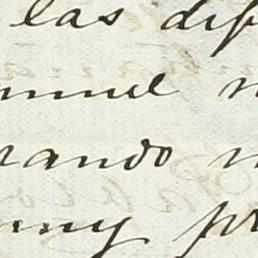 las dif
muel n
rando n
my pr